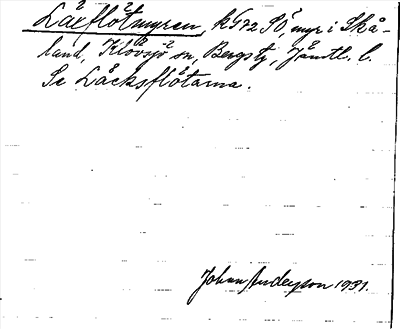 Läxflötmyren, k 572 SÖ, myr i Skå-
land, Klövsjö sn, Bergs tg, Jämtl. l.
Se Läcksflötarna.
Johan Anderson 1931.